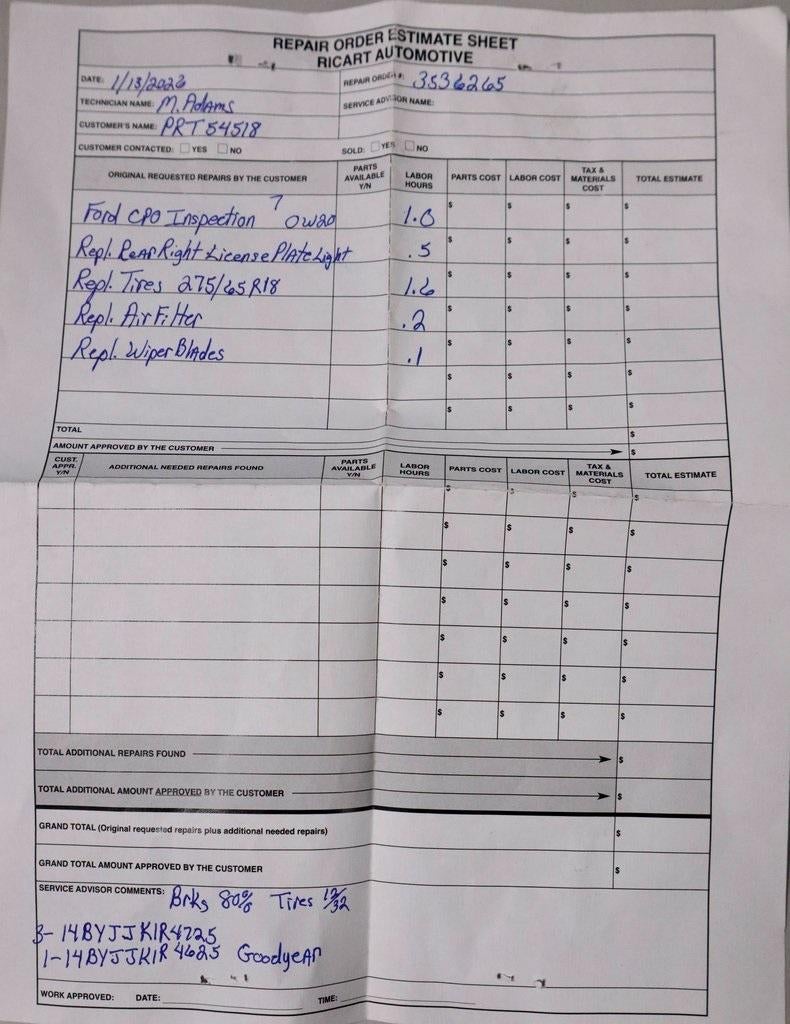 REPAIR ORDER ESTIMATE SHEET
RICART AUTOMOTIVE
DATE: 1/13/2026 REPAIR ORDER #: 3536265
TECHNICIAN NAME: M. Adams SERVICE ADVISOR NAME:
CUSTOMER'S NAME: PRT54518
CUSTOMER CONTACTED: YES NO SOLD: YES NO
ORIGINAL REQUESTED REPAIRS BY THE CUSTOMER PARTS AVAILABLE Y/N LABOR HOURS PARTS COST LABOR COST TAX & MATERIALS COST TOTAL ESTIMATE
Ford CPO Inspection 7 0W20 1.0 $ $ $ $
Repl. Rear Right License Plate Light .5 $ $ $ $
Repl. Tires 275/65R18 1.6 $ $ $ $
Repl. Air Filter .2 $ $ $ $
Repl. Wiper Blades .1 $ $ $ $
$ $ $ $
$ $ $ $
TOTAL $
AMOUNT APPROVED BY THE CUSTOMER $
CUST. APPR. Y/N ADDITIONAL NEEDED REPAIRS FOUND PARTS AVAILABLE Y/N LABOR HOURS PARTS COST LABOR COST TAX & MATERIALS COST TOTAL ESTIMATE
$ $ $ $
$ $ $ $
$ $ $ $
$ $ $ $
$ $ $ $
$ $ $ $
$ $ $ $
TOTAL ADDITIONAL REPAIRS FOUND $
TOTAL ADDITIONAL AMOUNT APPROVED BY THE CUSTOMER $
GRAND TOTAL (Original requested repairs plus additional needed repairs) $
GRAND TOTAL AMOUNT APPROVED BY THE CUSTOMER $
SERVICE ADVISOR COMMENTS: Brks 80% Tires 12/32
3-14BYJJKIR4725
1-14BYJJKIR4625 Goodyear
WORK APPROVED: DATE: TIME: